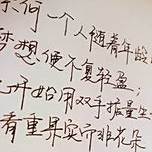 何一个人随着年龄
梦想便不复轻盈；
开始用双手掂量生
看重果实而非花朵